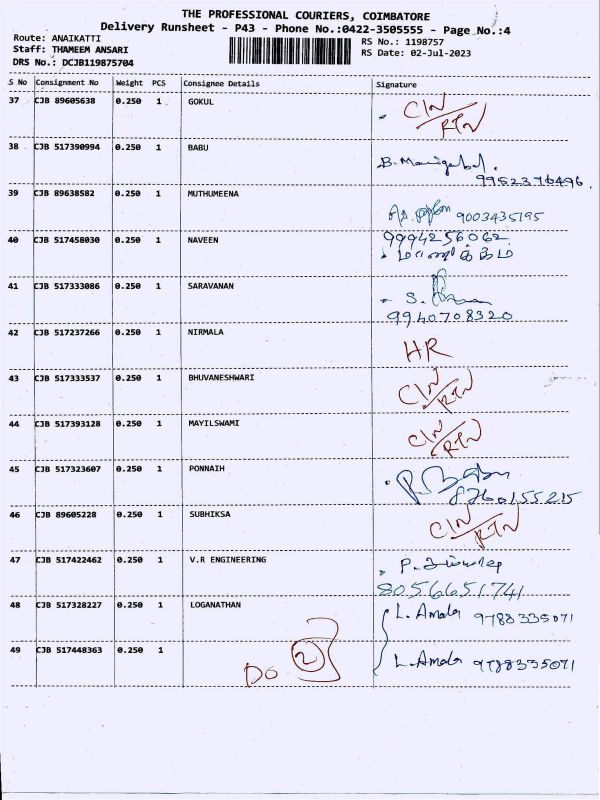 THE PROFESSIONAL COURIERS, COIMBATORE
Delivery Runsheet - P43 - Phone No.:0422-3505555 - Page No.:4
Route: ANAIKATTI
RS No.: 1198757
Staff: THAMEEM ANSARI
RS Date: 02-Jul-2023
DRS No.: DCJB119875704
S No Consignment No Weight PCS Consignee Details Signature
37 CJB 89605638 0.250 1 GOKUL CIN/RTN
38 CJB 517390994 0.250 1 BABU B.
9952376496.
39 CJB 89638582 0.250 1 MUTHUMEENA 9003435195
40 CJB 517458030 0.250 1 NAVEEN 9994256062
மாணிக்கம்
41 CJB 517333086 0.250 1 SARAVANAN S.
9940708320
42 CJB 517237266 0.250 1 NIRMALA HR
43 CJB 517333537 0.250 1 BHUVANESHWARI CIN/RTN
44 CJB 517393128 0.250 1 MAYILSWAMI CIN/RTN
45 CJB 517323607 0.250 1 PONNAIH P.
8760155215
46 CJB 89605228 0.250 1 SUBHIKSA CIN/RTN
47 CJB 517422462 0.250 1 V.R ENGINEERING P.
8056651741
48 CJB 517328227 0.250 1 LOGANATHAN L. Amala 9788335071
49 CJB 517448363 0.250 1 DO 2 L. Amala 9788335071